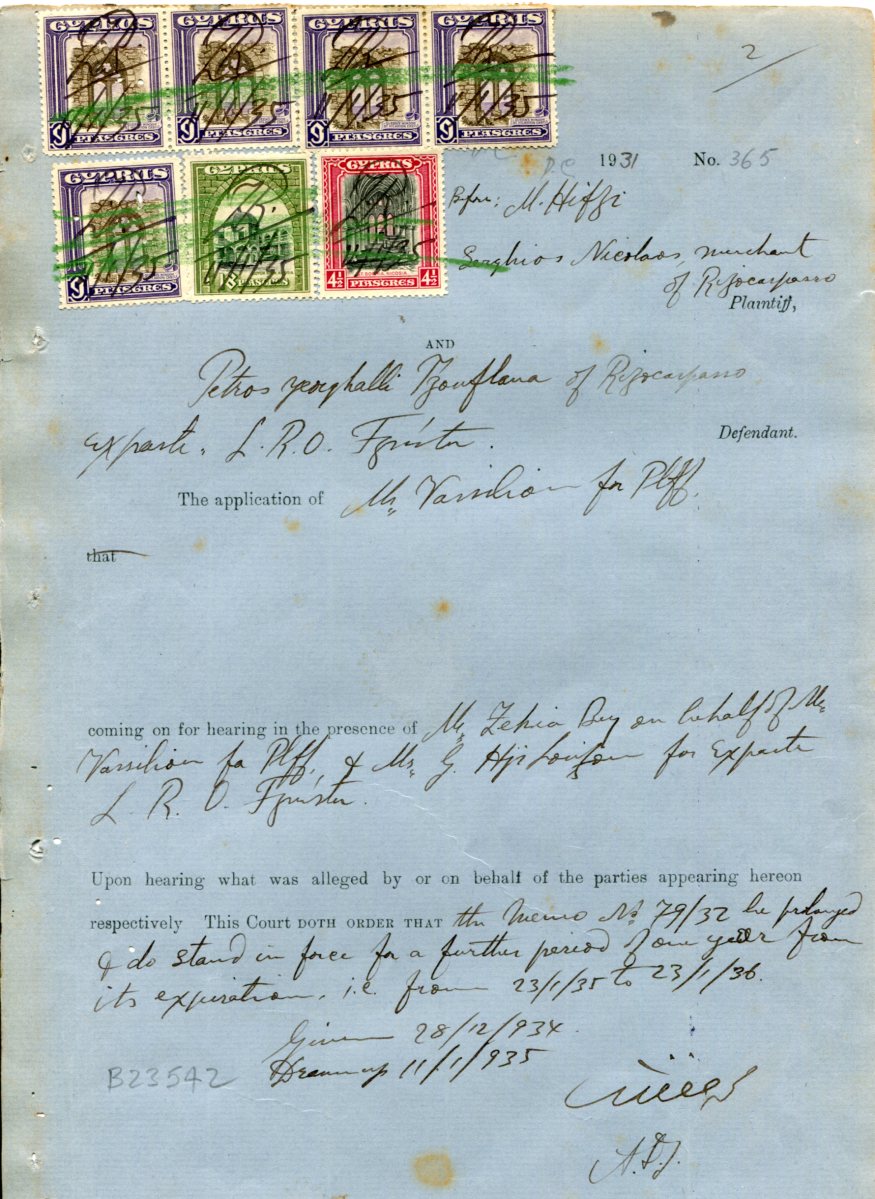 CYPRUS CYPRUS CYPRUS CYPRUS
11/1/35 11/1/35 11/1/35 11/1/35
9 PIASTRES 9 PIASTRES 9 PIASTRES 9 PIASTRES
2
D.C 1931 No. 365
CYPRUS CYPRUS CYPRUS
11/1/35 11/1/35 11/1/35
9 PIASTRES 18 PIASTRES 4½ PIASTRES 4½
Before: M. Hifzi
Yorghios Nicolaos, merchant
of Rizocarpasso
Plaintiff,
AND
Petros yeorghalli of Rizocarpasso
Defendant.
Exparte. L. R. O. F'gusta.
The application of Mr. Vassiliou for Plff.
that
coming on for hearing in the presence of Mr. Zekia Bey on behalf of Mr.
Vassiliou for Plff, & Mr. G. for Exparte
L. R. O. F'gusta.
Upon hearing what was alleged by or on behalf of the parties appearing hereon
respectively This Court DOTH ORDER THAT the Memo No 79/32 be prolonged
& do stand in force for a further period of one year from
its expiration, i.e. from 23/1/35 to 23/1/36.
Given 28/12/934.
Drawn up 11/1/935
B23542
A.D.J.